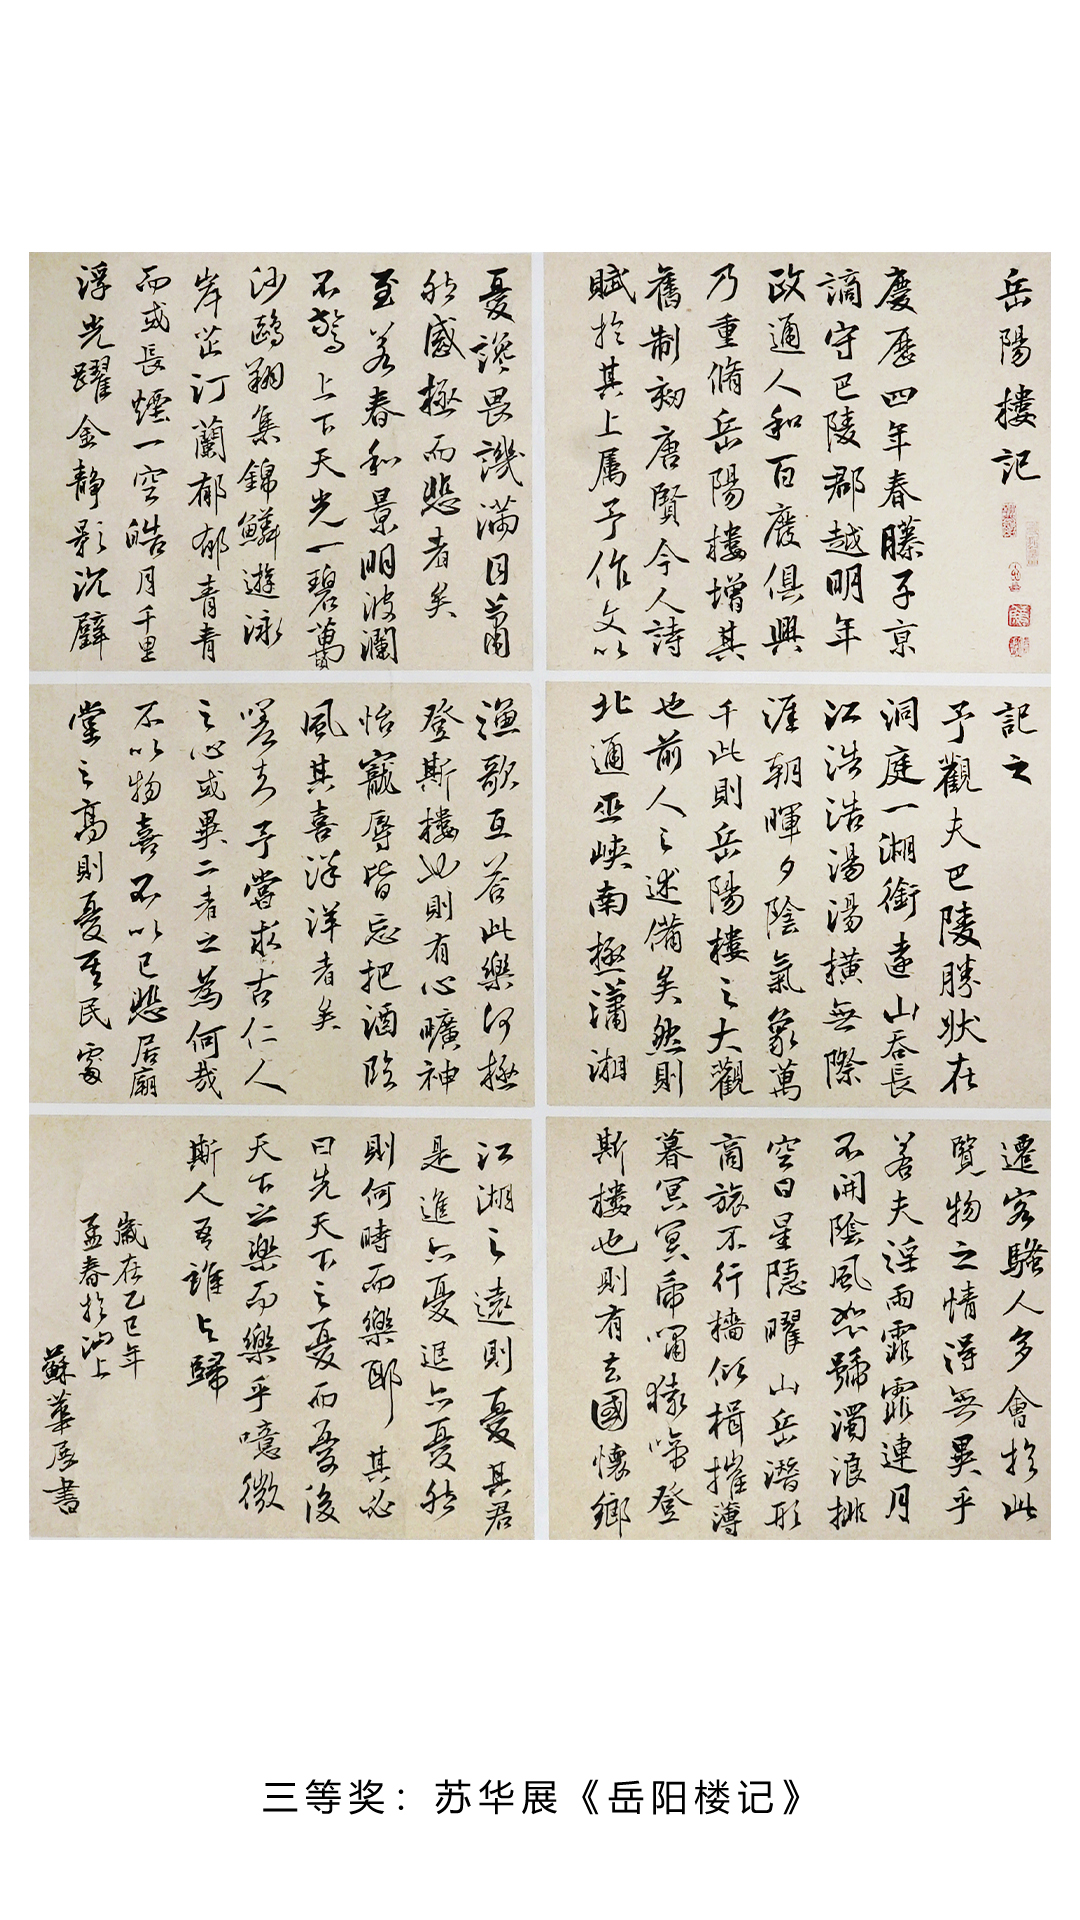 岳陽樓記
慶歷四年春滕子京
謫守巴陵郡越明年
政通人和百廢俱興
乃重脩岳陽樓增其
舊制刻唐賢今人詩
賦於其上属予作文以
記之
予觀夫巴陵勝狀在
洞庭一湖銜遠山吞長
江浩浩湯湯橫無際
涯朝暉夕陰氣象萬
千此則岳陽樓之大觀
也前人之述備矣然則
北通巫峽南極瀟湘
遷客騷人多會於此
覽物之情得無異乎
若夫淫雨霏霏連月
不開陰風怒號濁浪排
空日星隱曜山岳潛形
商旅不行檣傾楫摧薄
暮冥冥虎嘯猿啼登
斯樓也則有去國懷鄉
憂讒畏譏滿目蕭
然感極而悲者矣
至若春和景明波瀾
不驚上下天光一碧萬
沙鷗翔集錦鱗遊泳
岸芷汀蘭郁郁青青
而或長煙一空皓月千里
浮光躍金靜影沉璧
漁歌互答此樂何極
登斯樓也則有心曠神
怡寵辱皆忘把酒臨
風其喜洋洋者矣
嗟夫予嘗求古仁人
之心或異二者之為何哉
不以物喜不以己悲居廟
堂之高則憂其民處
江湖之遠則憂其君
是進亦憂退亦憂然
則何時而樂耶其必
曰先天下之憂而憂後
天下之樂而樂乎噫微
斯人吾誰與歸
歲在乙巳年
孟春於汕上
蘇華展書
三等奖：苏华展《岳阳楼记》